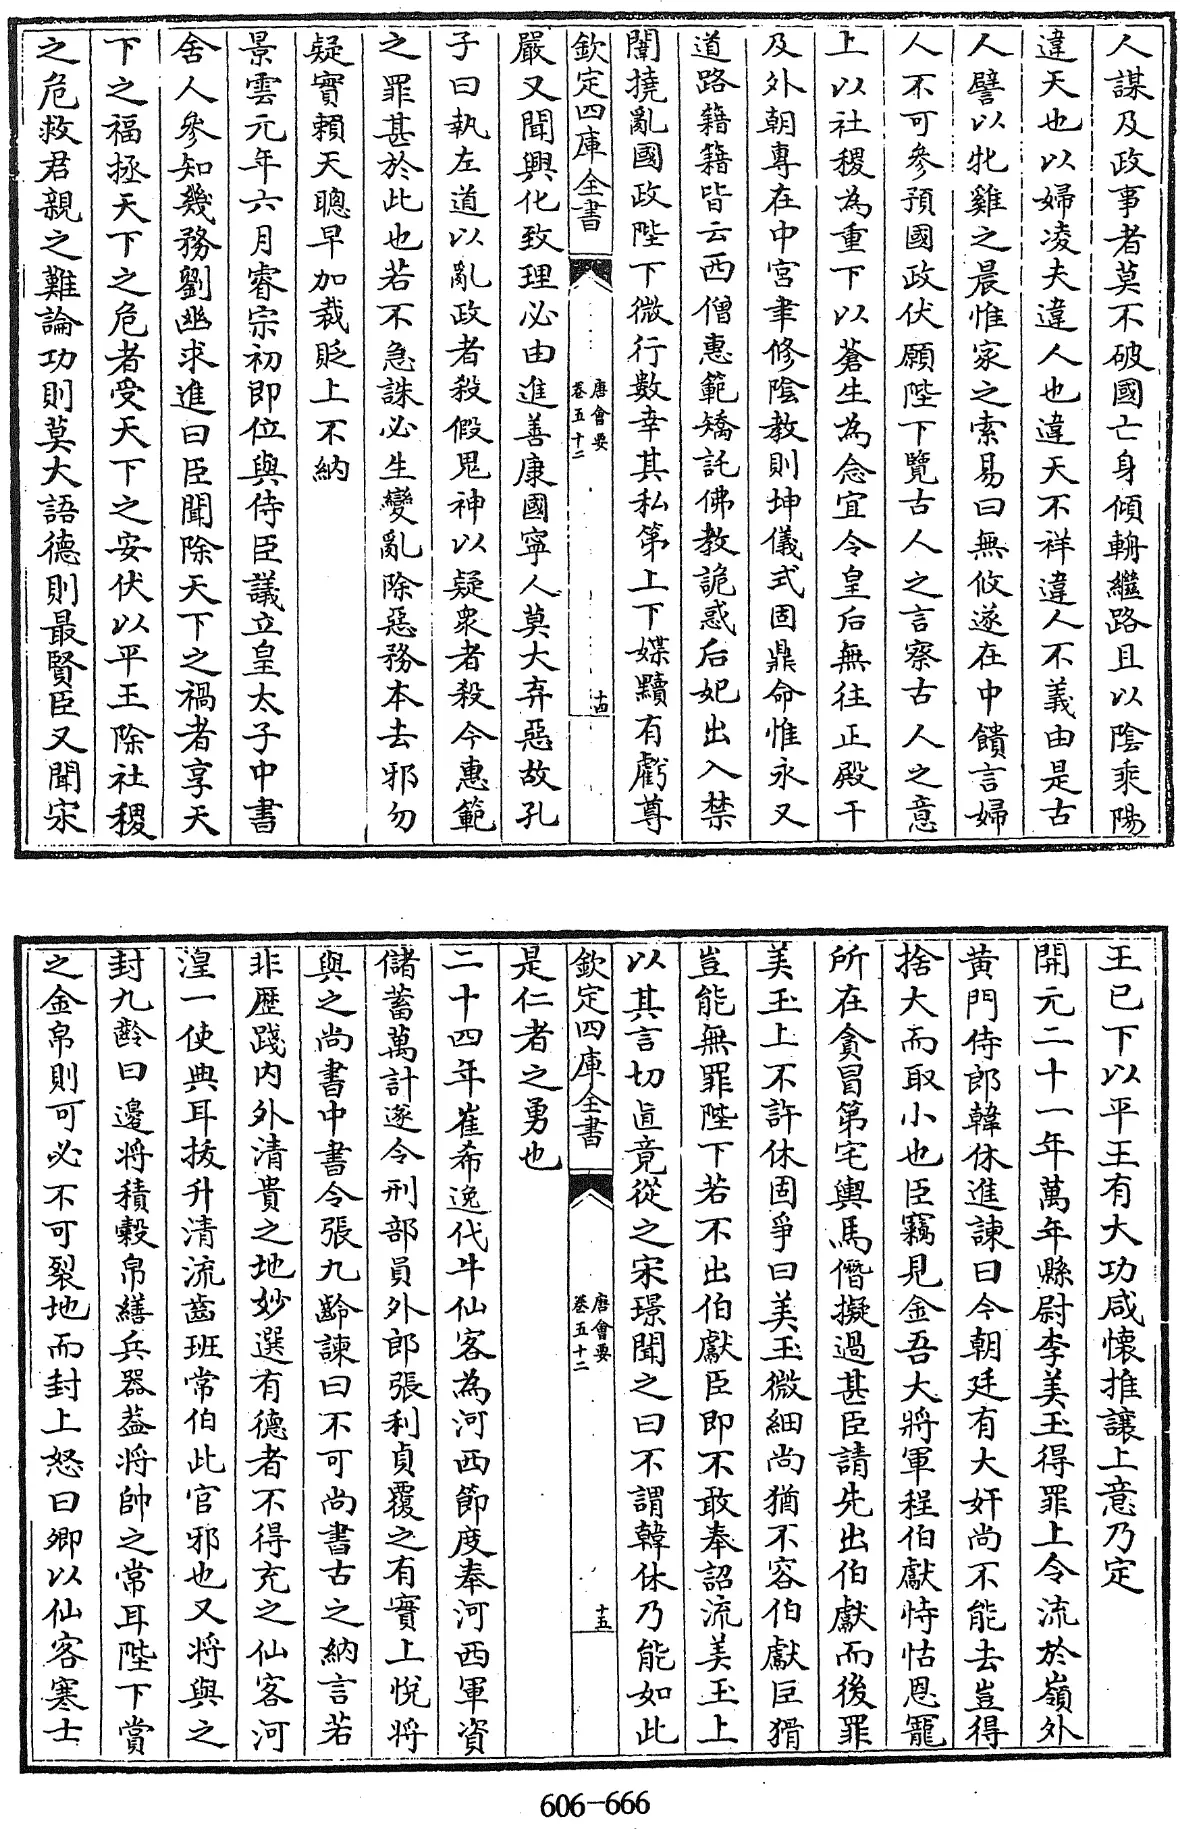 人謀及政事者莫不破國亡身傾輈繼路且以陰乘陽
違天也以婦凌夫違人也違天不祥違人不義由是古
人譬以牝雞之晨惟家之索易曰無攸遂在中饋言婦
人不可參預國政伏願陛下覽古人之言察古人之意
上以社稷為重下以蒼生為念宜令皇后無往正殿干
及外朝專在中宮聿修陰教則坤儀式固鼎命惟永又
道路籍籍皆云西僧惠範矯託佛教詭惑后妃出入禁
闈撓亂國政陛下微行數幸其私第上下媟黷有虧尊
欽定四庫全書
唐會要
卷五十二
十四
嚴又聞興化致理必由進善康國寧人莫大弃惡故孔
子曰執左道以亂政者殺假鬼神以疑衆者殺今惠範
之罪甚於此也若不急誅必生變亂除惡務本去邪勿
疑實賴天聰早加裁貶上不納
景雲元年六月睿宗初即位與侍臣議立皇太子中書
舍人參知幾務劉幽求進曰臣聞除天下之禍者享天
下之福拯天下之危者受天下之安伏以平王除社稷
之危救君親之難論功則莫大語德則最賢臣又聞宋
王已下以平王有大功咸懷推讓上意乃定
開元二十一年萬年縣尉李美玉得罪上令流於嶺外
黃門侍郎韓休進諫曰今朝廷有大奸尚不能去豈得
捨大而取小也臣竊見金吾大將軍程伯獻恃怙恩寵
所在貪冒第宅輿馬僭擬過甚臣請先出伯獻而後罪
美玉上不許休固爭曰美玉微細尚猶不容伯獻巨猾
豈能無罪陛下若不出伯獻臣即不敢奉詔流美玉上
以其言切直竟從之宋璟聞之曰不謂韓休乃能如此
欽定四庫全書
唐會要
卷五十二
十五
是仁者之勇也
二十四年崔希逸代牛仙客為河西節度奉河西軍資
儲蓄萬計遂令刑部員外郎張利貞覆之有實上悅將
與之尚書中書令張九齡諫曰不可尚書古之納言若
非歷踐內外清貴之地妙選有德者不得充之仙客河
湟一使典耳拔升清流齒班常伯此官邪也又將與之
封九齡曰邊將積穀帛繕兵器葢將帥之常耳陛下賞
之金帛則可必不可裂地而封上怒曰卿以仙客寒士
606-666